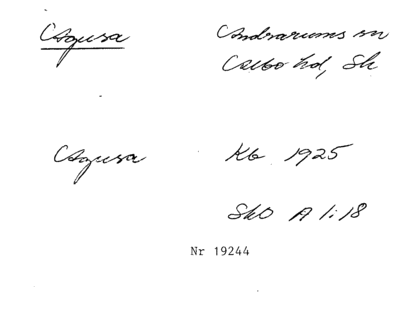 Agusa Andrarums sn
Albo hd, Sk
Agusa Kb 1925
SkO A 1:18
Nr 19244